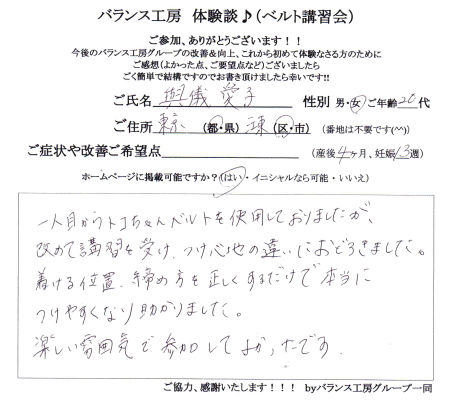 バランス工房 体験談♪(ベルト講習会)
ご参加、ありがとうございます！！
今後のバランス工房グループの改善&向上、これから初めて体験なさる方のために
ご感想(よかった点、ご要望点など)ございましたら
ごく簡単で結構ですのでお書き頂けましたら幸いです!!
ご氏名 與儀 愛子 性別 男・女 ご年齢 20代
ご住所 東京 (都・県) 練 (区・市) (番地は不要です(^^))
ご症状や改善ご希望点 (産後4ヶ月、妊娠13週)
ホームページに掲載可能ですか？(はい・イニシャルなら可能・いいえ)
一人目からトコちゃんベルトを使用しておりましたが、
改めて講習を受け、つけ心地の違いにおどろきました。
着ける位置、締め方を正しくするだけで本当に
つけやすくなり助かりました。
楽しい雰囲気で参加してよかったです.
ご協力、感謝いたします！！！ byバランス工房グループ一同